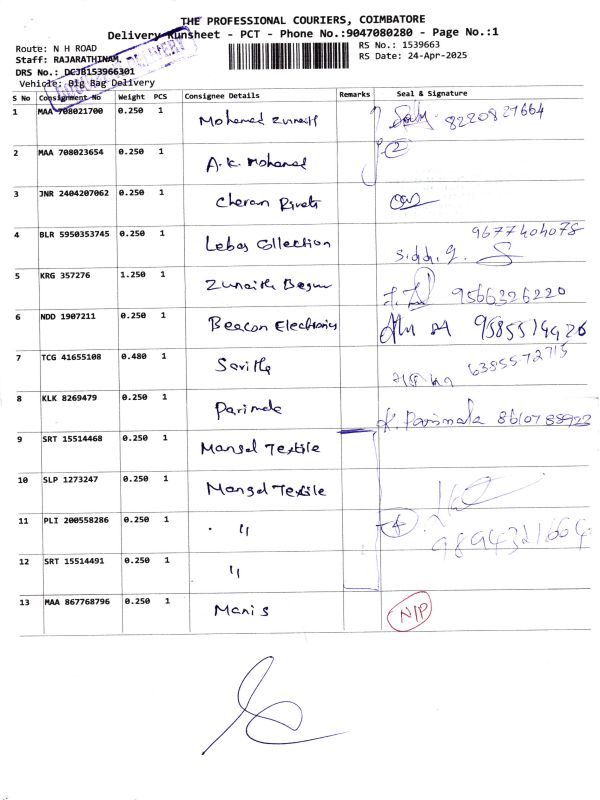 THE PROFESSIONAL COURIERS, COIMBATORE
Delivery Runsheet - PCT - Phone No.:9047080280 - Page No.:1
Route: N H ROAD
RS No.: 1539663
Staff: RAJARATHINAM.
RS Date: 24-Apr-2025
DRS No.: DCJB153966301
Vehicle: Big Bag Delivery
S No Consignment No Weight PCS Consignee Details Remarks Seal & Signature
1 MAA 708021700 0.250 1 Mohamed Zunaith 8220827664
2 MAA 708023654 0.250 1 A.K. Mohamed 2
3 JNR 2404207062 0.250 1 Cheran Rivets
4 BLR 5950353745 0.250 1 Lebas Collection 9677404078
5 KRG 357276 1.250 1 Zunaitha Begum 9566326220
6 NDD 1907211 0.250 1 Beacon Electronics
7 TCG 41655108 0.480 1 Savitha 6385572715
8 KLK 8269479 0.250 1 Parimala K. Parimala 8610788923
9 SRT 15514468 0.250 1 Mangal Textile
10 SLP 1273247 0.250 1 Mangal Textile
11 PLI 200558286 0.250 1 " 4 9894321664
12 SRT 15514491 0.250 1 "
13 MAA 867768796 0.250 1 Manis N/P